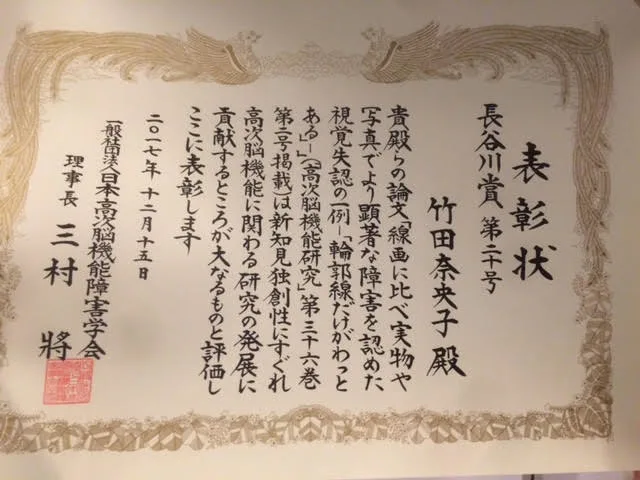 表彰状
長谷川賞 第二十号
竹田奈央子 殿
貴殿らの論文「線画に比べ実物や
写真でより顕著な障害を認めた
視覚失認の一例―「輪郭線だけがわっと
ある」―」(高次脳機能研究」第三十六巻
第二号掲載)は新知見独創性にすぐれ
高次脳機能に関わる研究の発展に
貢献するところが大なるものと評価し
ここに表彰します
二〇一七年 十二月 十五日
一般社団法人日本高次脳機能障害学会
理事長 三村 將